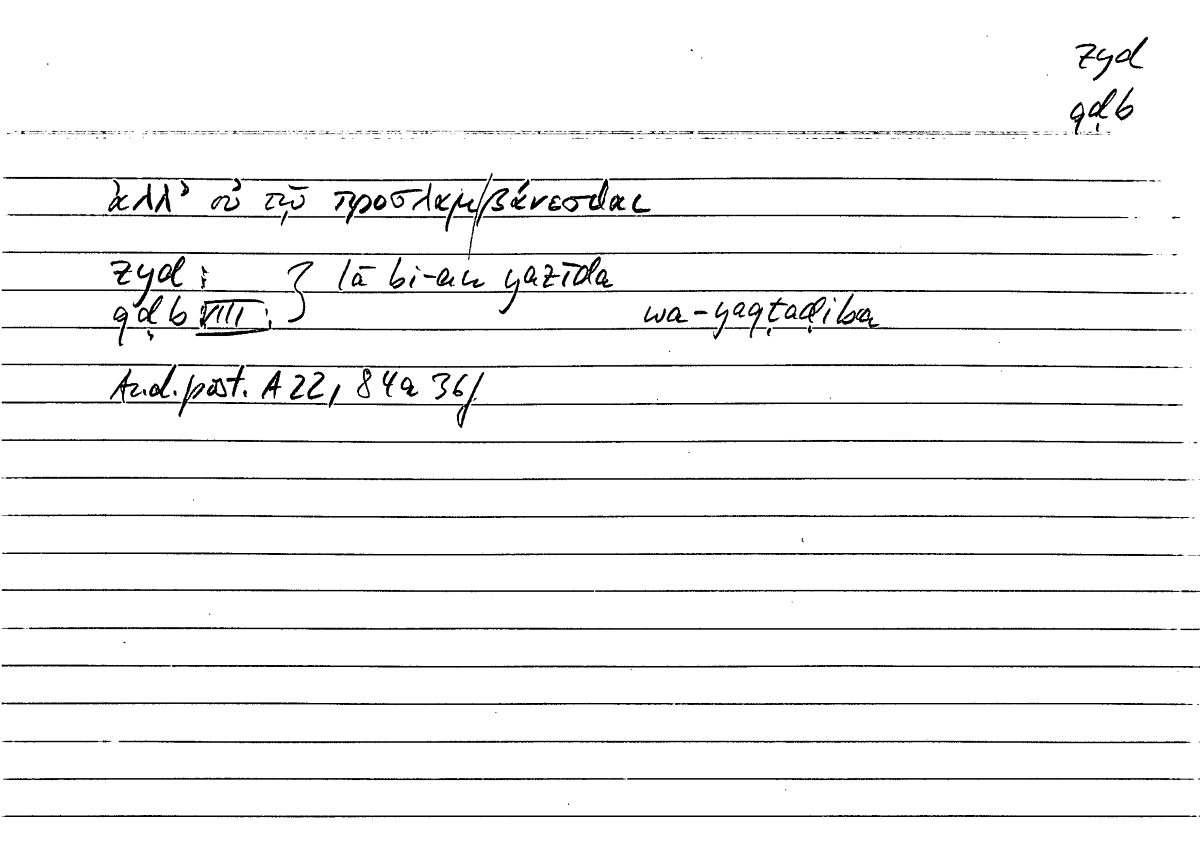 zyd
qḍb
ἀλλ' οὐ τῷ προσλαμ/βάνεσθαι
zyd :
qḍb VIII : } lā bi-an yazīda
wa-yaqtaḍiba
An.d.post. A 22, 84a 36f